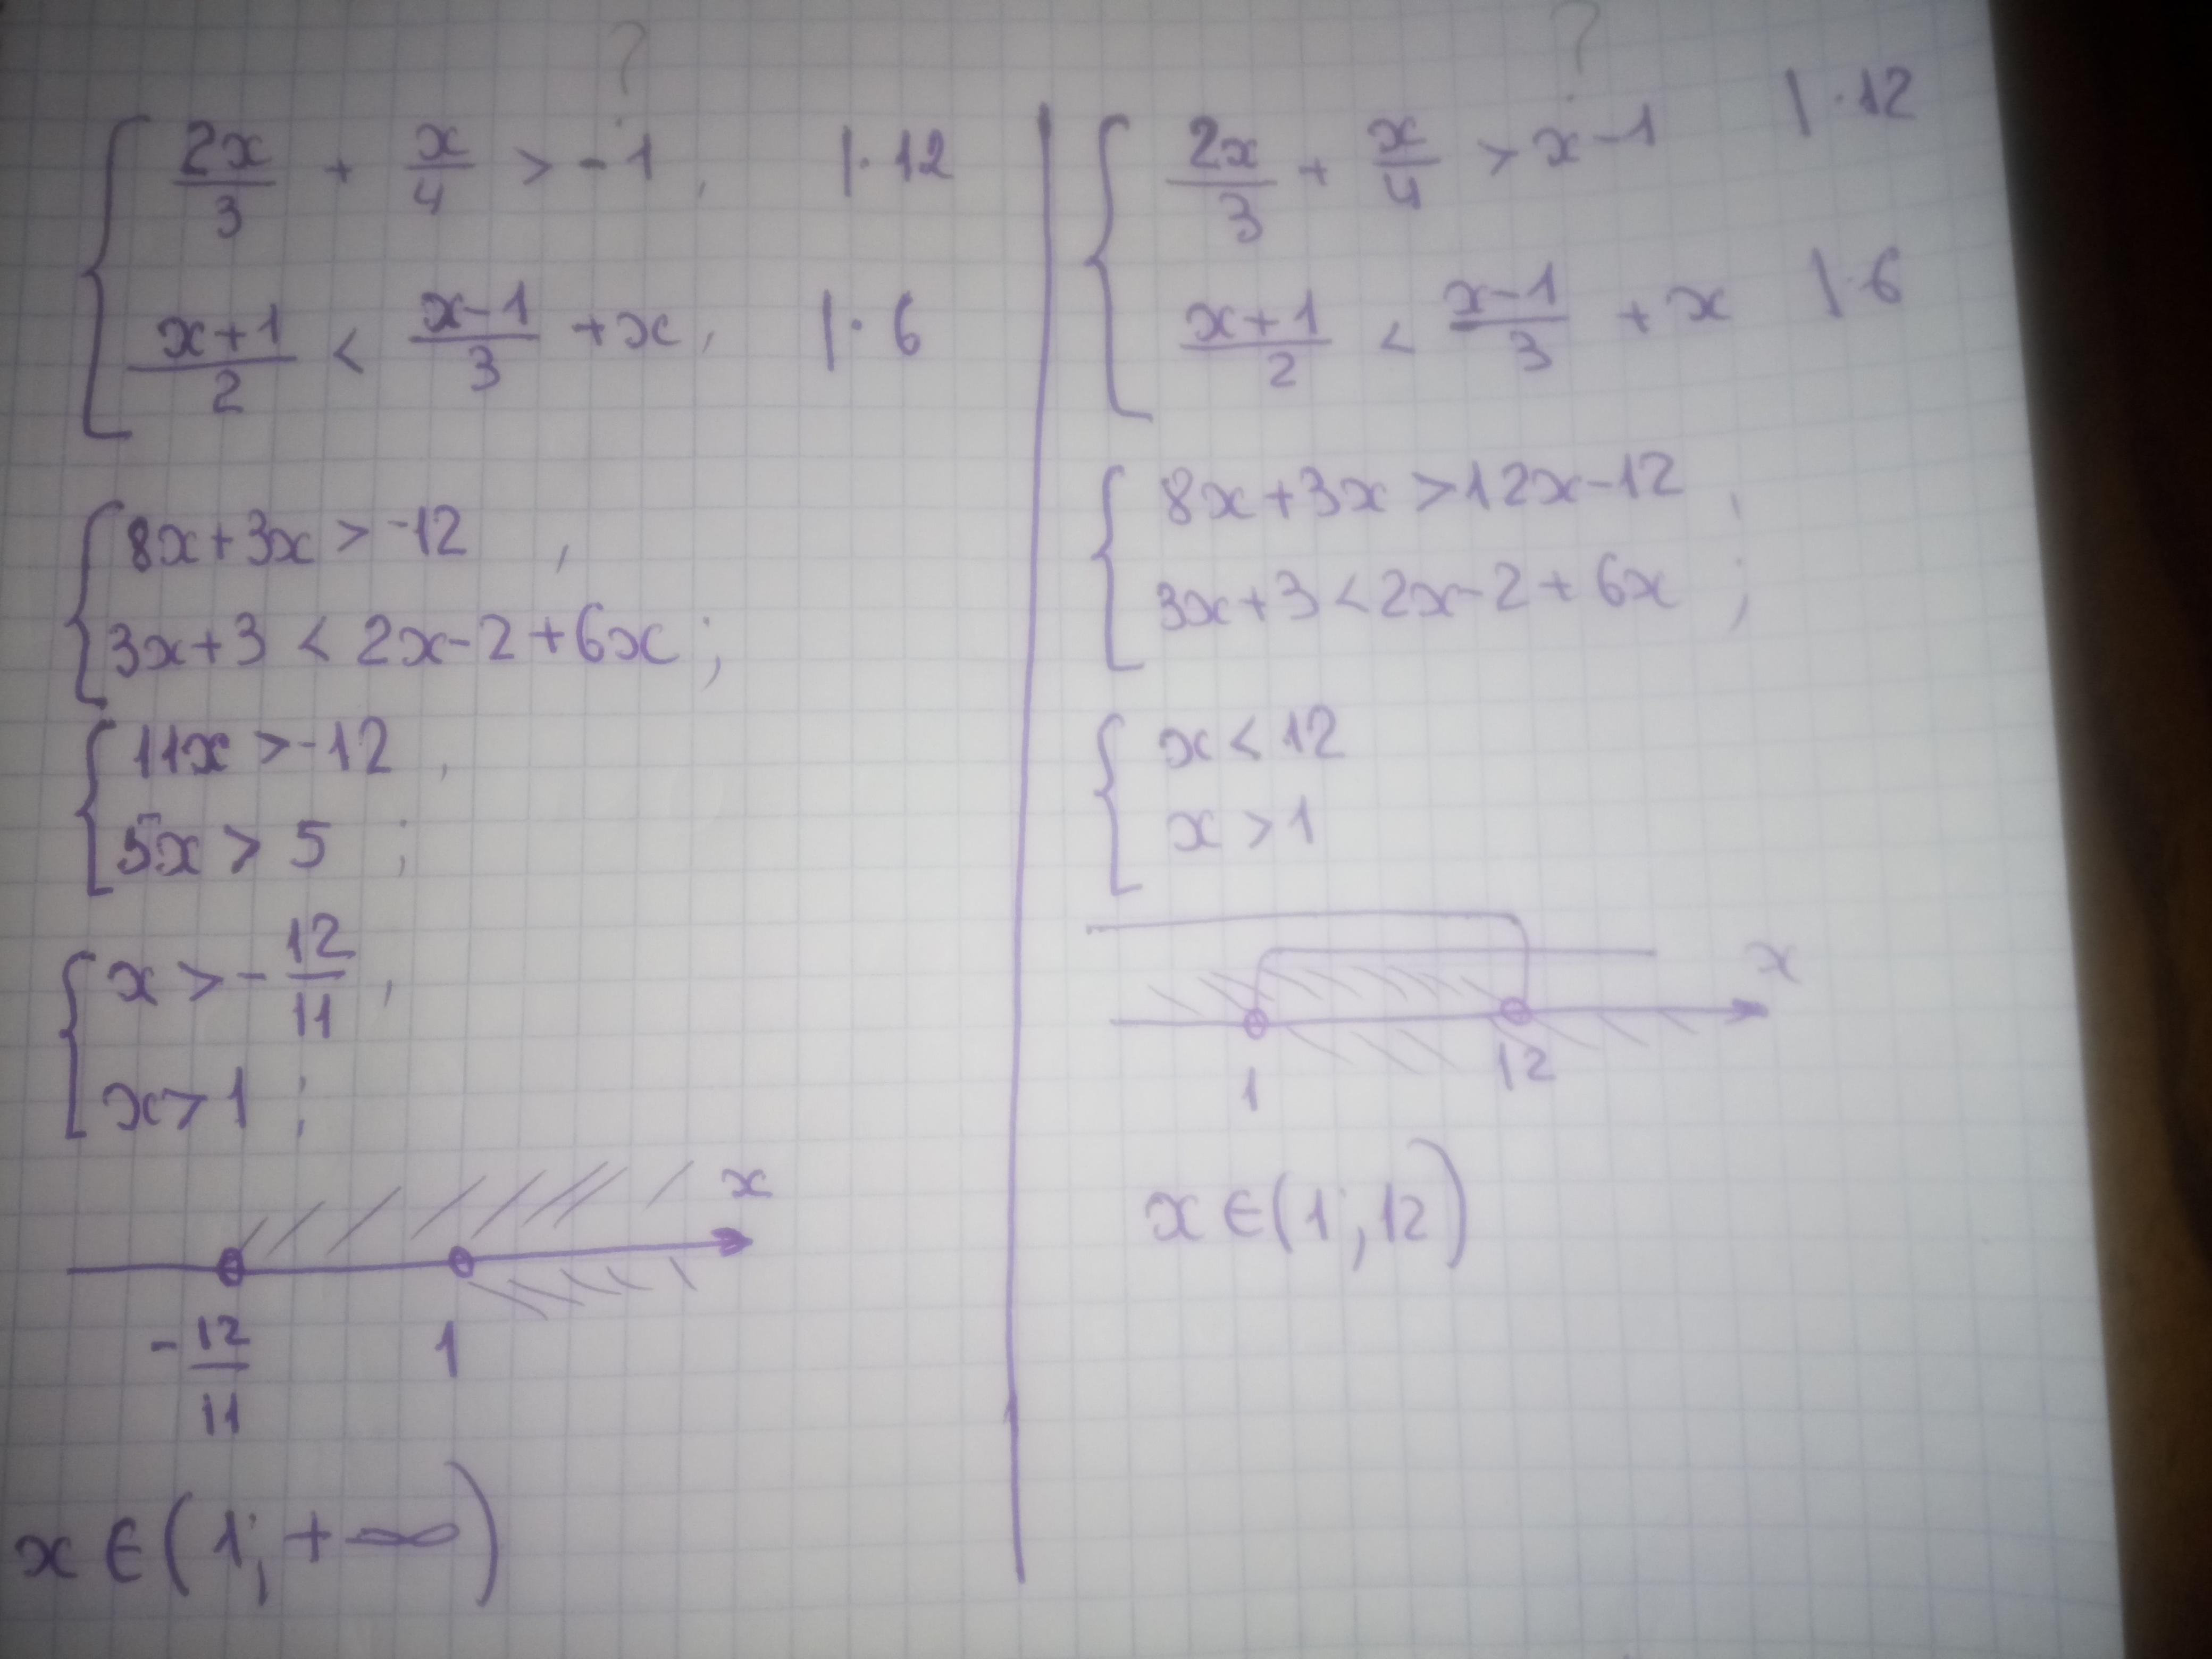 ?
2x/3 + x/4 > -1, |·12
(x+1)/2 < (x-1)/3 + x, |·6
8x+3x > -12 ,
3x+3 < 2x-2+6x ;
11x > -12 ,
5x > 5 ;
x > - 12/11 ,
x > 1 ;
x
- 12/11 1
x ∈ (1; +∞)
?
2x/3 + x/4 > x-1 |·12
(x+1)/2 < (x-1)/3 + x |·6
8x+3x > 12x-12 ,
3x+3 < 2x-2+6x ;
x < 12
x > 1
x
1 12
x ∈ (1; 12)